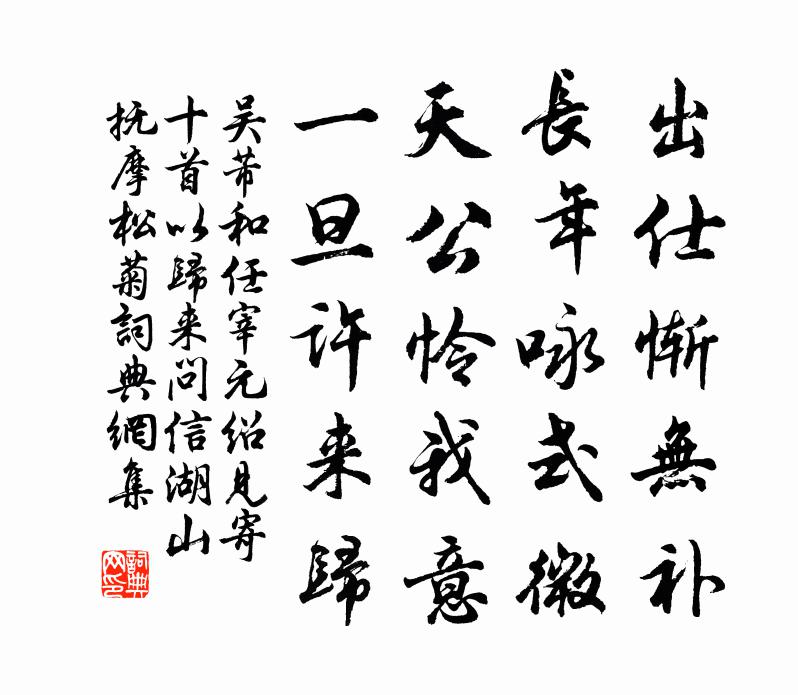 出仕慚無补
長年咏式微
天公怜我意
一旦许来歸
吴芾和任宰元绍見寄
十首以歸来问信湖山
抚摩松菊詞典網集
詞典网印